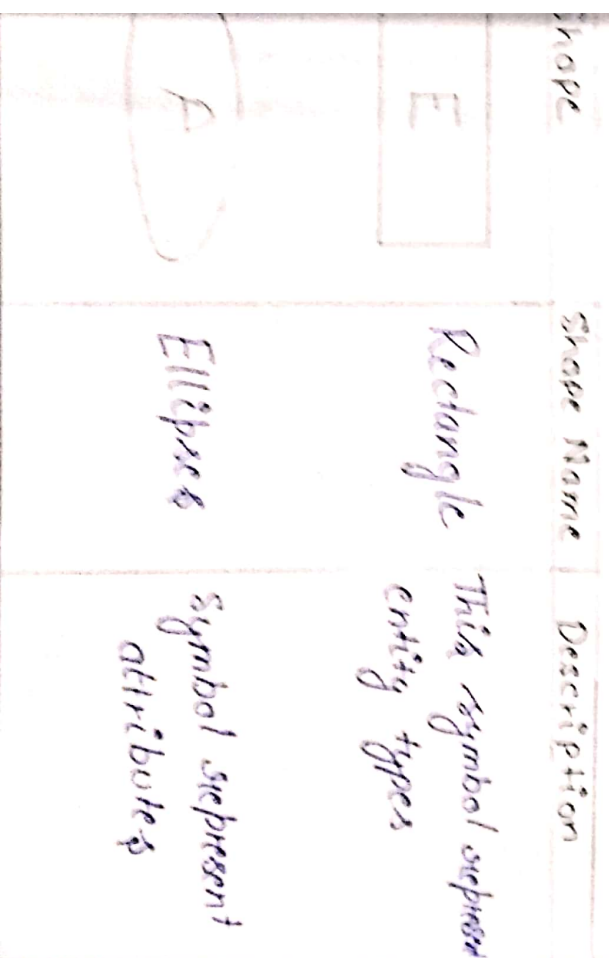 Shape Shape Name Description
E Rectangle This symbol represent
entity types
A Ellipses symbol represent
attributes